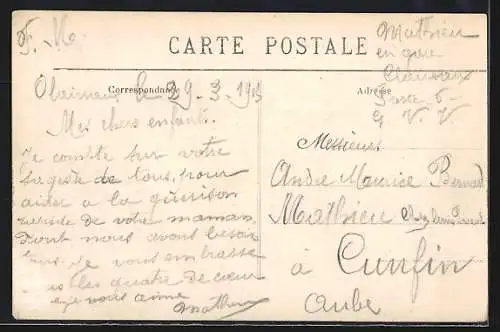 F. M.
CARTE POSTALE
Mathieu
en gare
Clairvaux
Poste 6
G V. V
Correspondance
Adresse
le 29-3-1915
Mes chers enfants.
Je compte sur votre
sagesse de tous, pour
aider a la guérison
rapide de votre maman
dont nous avons besoin
tous. Je vous embrasse
tous les quatre de cœur
je vous aime
Mathieu
Messieurs
André Maurice Bernard
Mathieu
à Cunfin
Aube